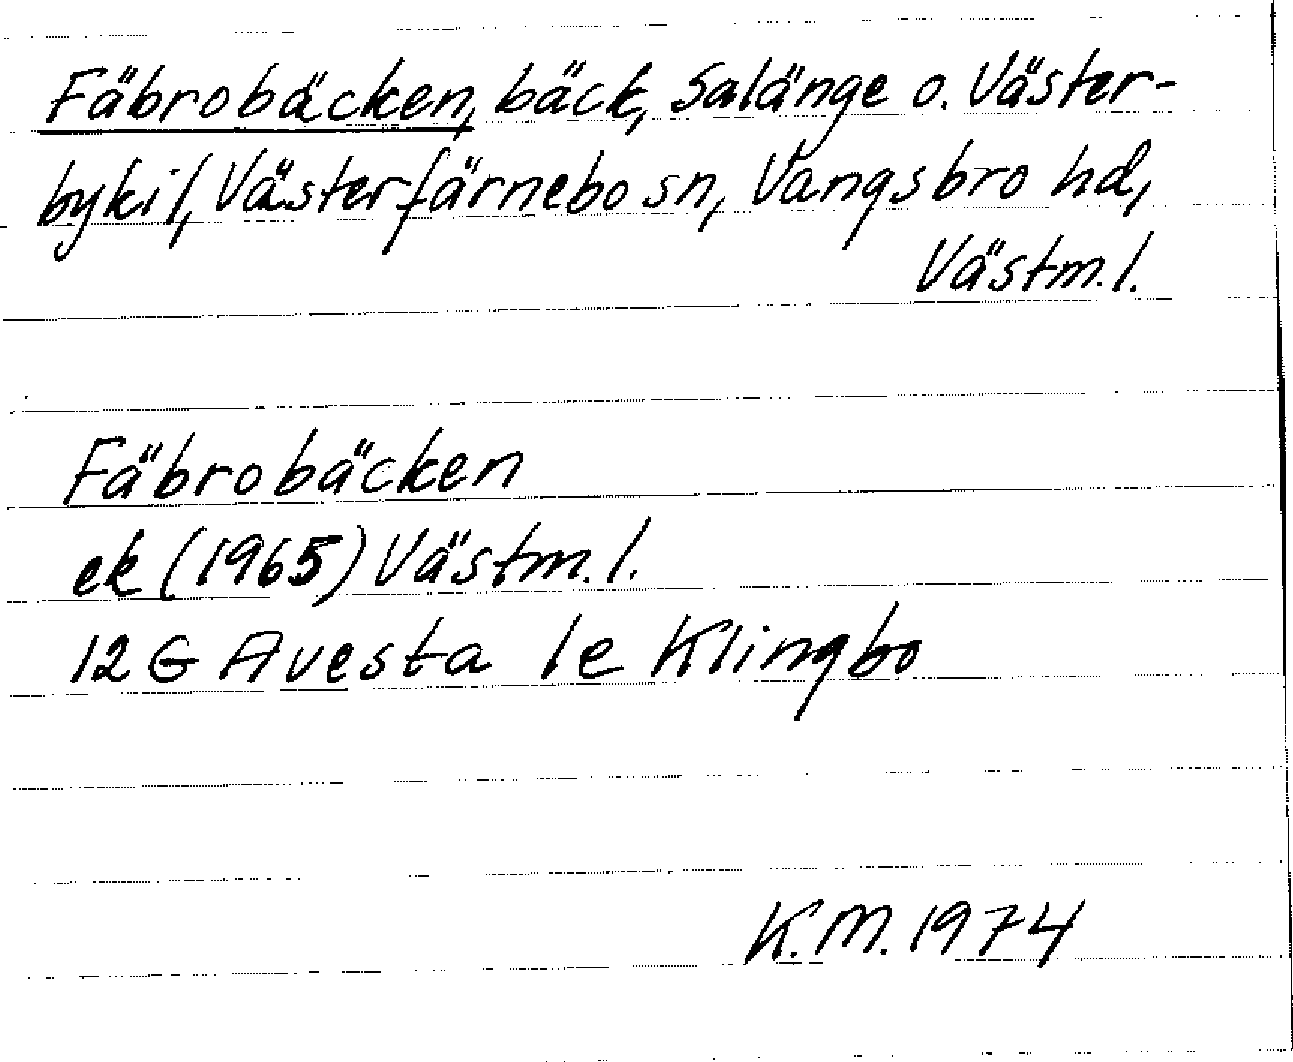 Fäbrobäcken, bäck, Salänge o. Väster-
bykil, Västerfärnebo sn, Vangsbro hd,
Västm.l.
Fäbrobäcken
ek (1965) Västm.l.
12 G Avesta 1e Klingbo
K.M. 1974